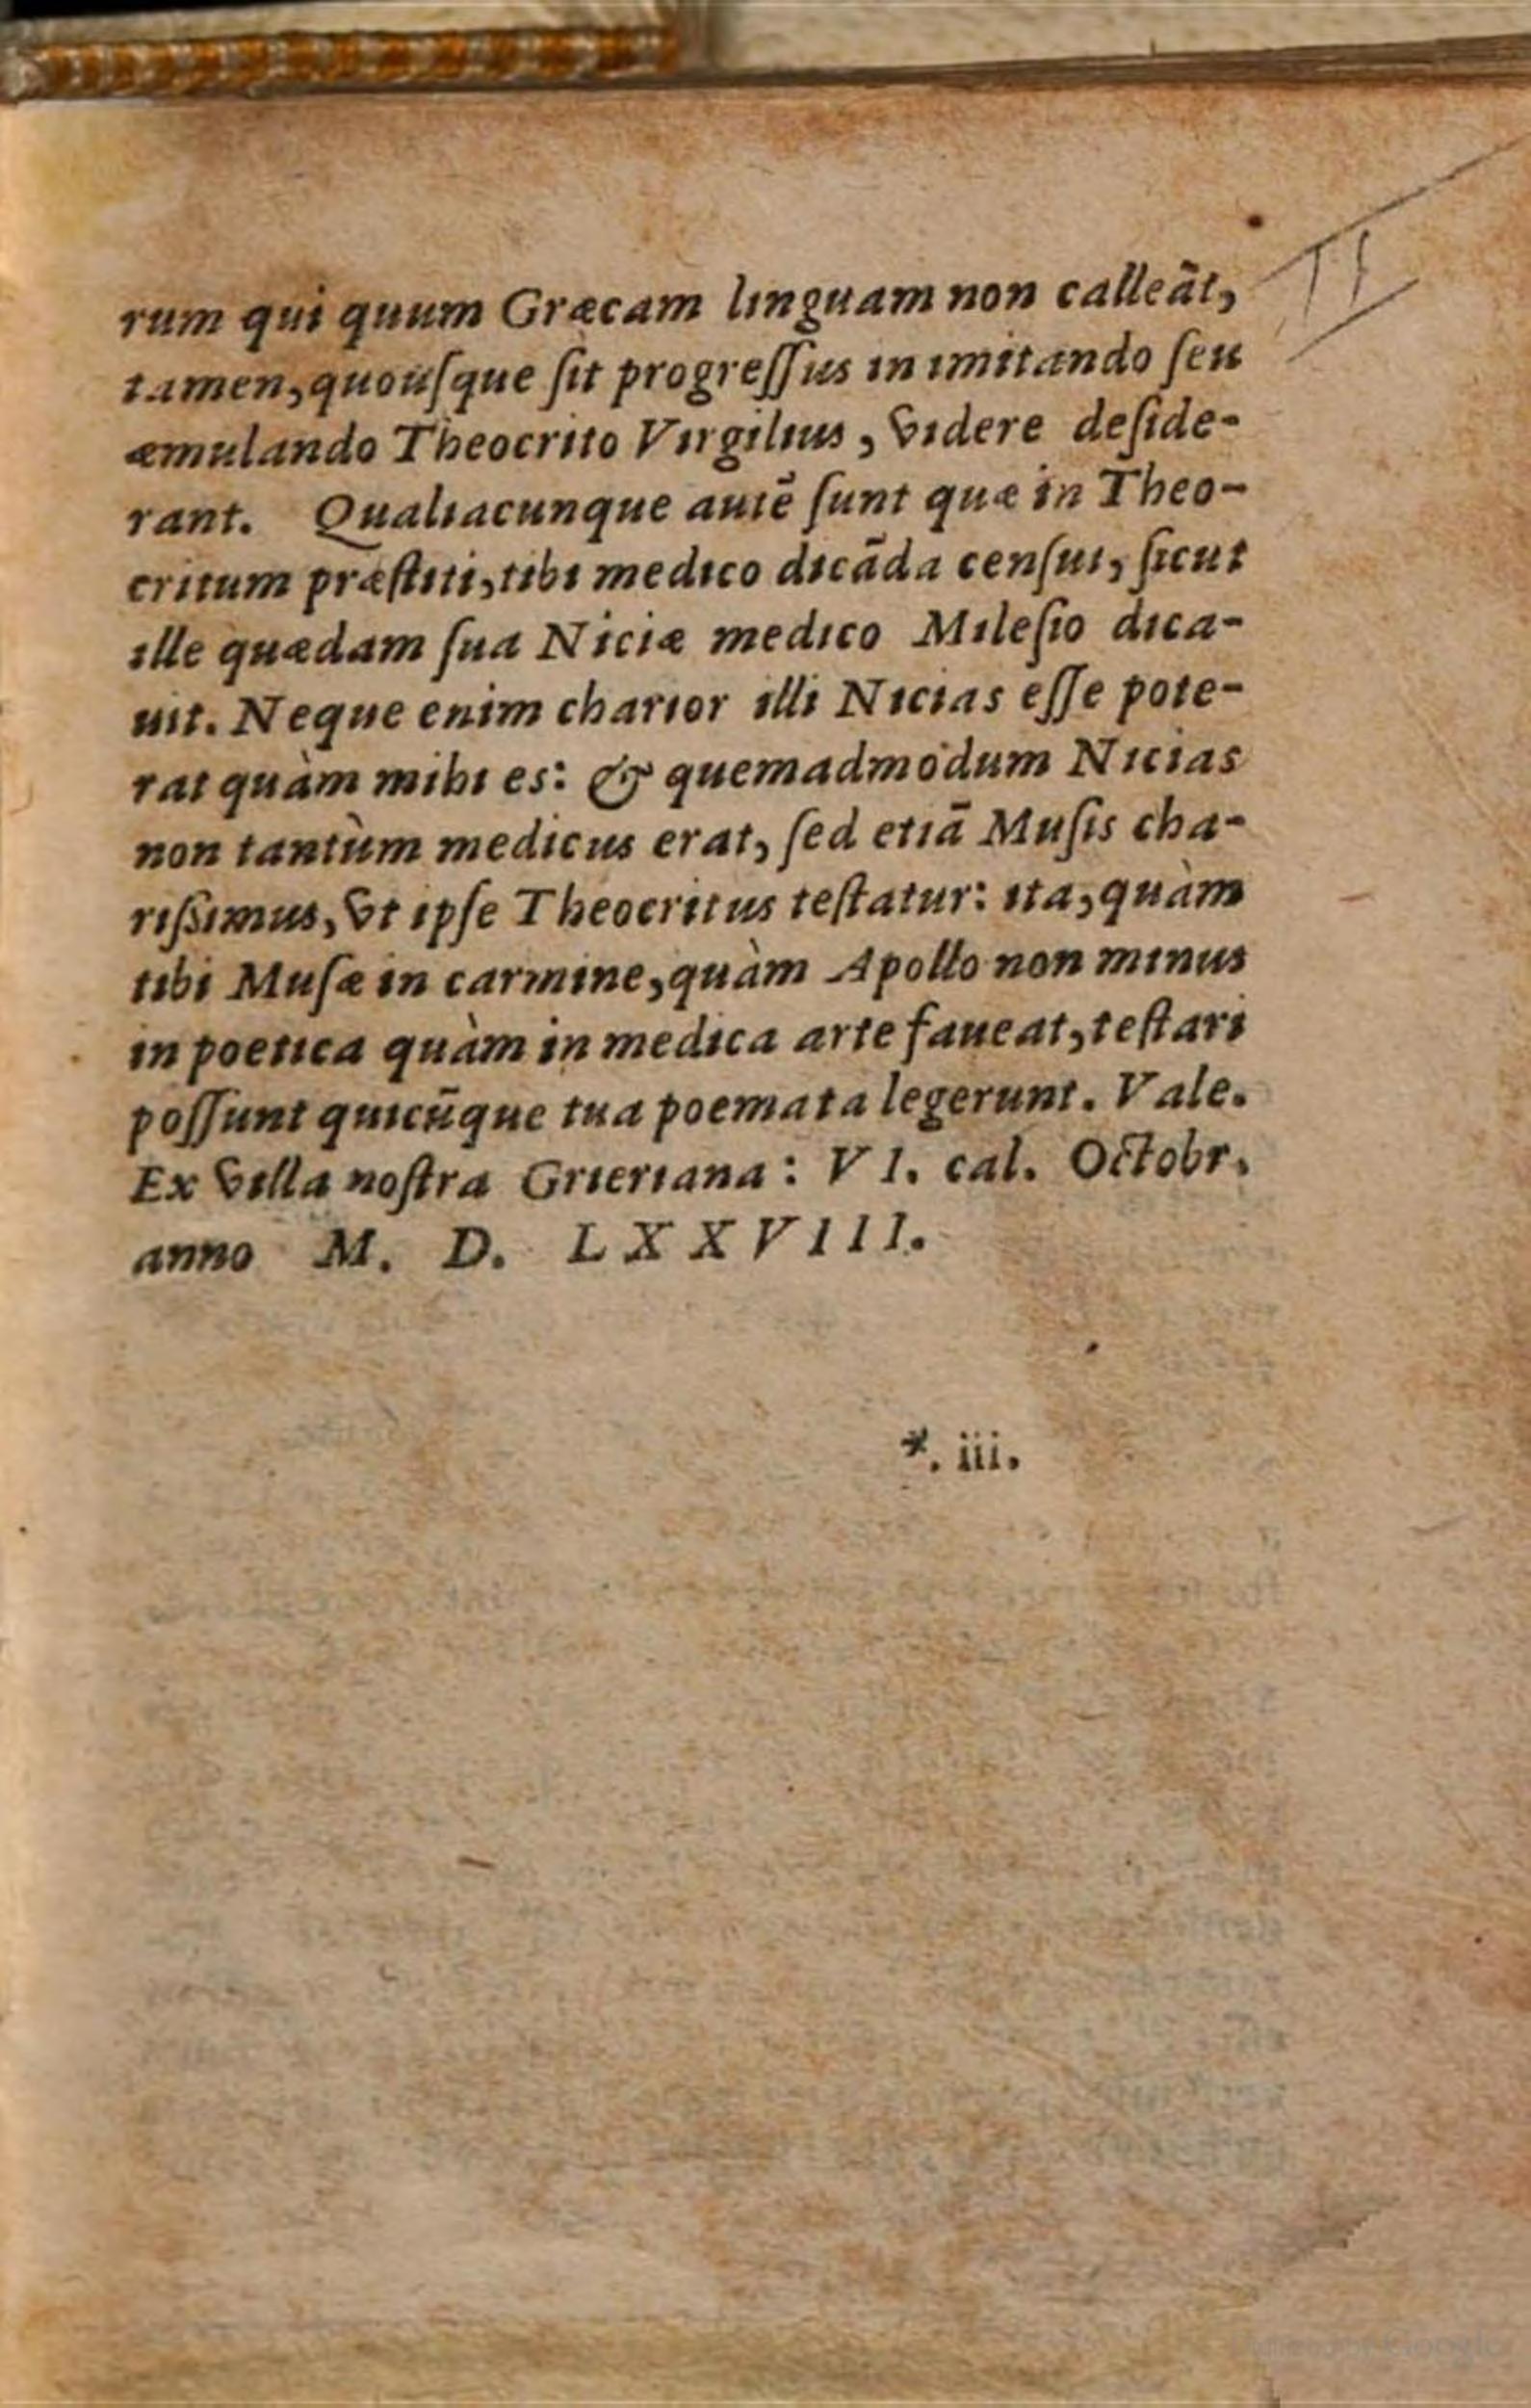 rum qui quum Græcam linguam non calleāt,
tamen, quoúſque ſit progreſſus in imitando ſeu
æmulando Theocrito Virgilius, videre deſide-
rant. Qualiacunque autē ſunt quæ in Theo-
critum præſtiti, tibi medico dicāda cenſui, ſicut
ille quædam ſua Niciæ medico Mileſio dica-
uit. Neque enim charior illi Nicias eſſe pote-
rat quàm mihi es: & quemadmodum Nicias
non tantùm medicus erat, ſed etiā Muſis cha-
riſsimus, vt ipſe Theocritus teſtatur: ita, quàm
tibi Muſæ in carmine, quàm Apollo non minus
in poetica quàm in medica arte faueat, teſtari
poſſunt quicūque tua poemata legerunt. Vale.
Ex villa noſtra Grieriana: VI. cal. Octobr.
anno M. D. LXXVIII.
*. iii.